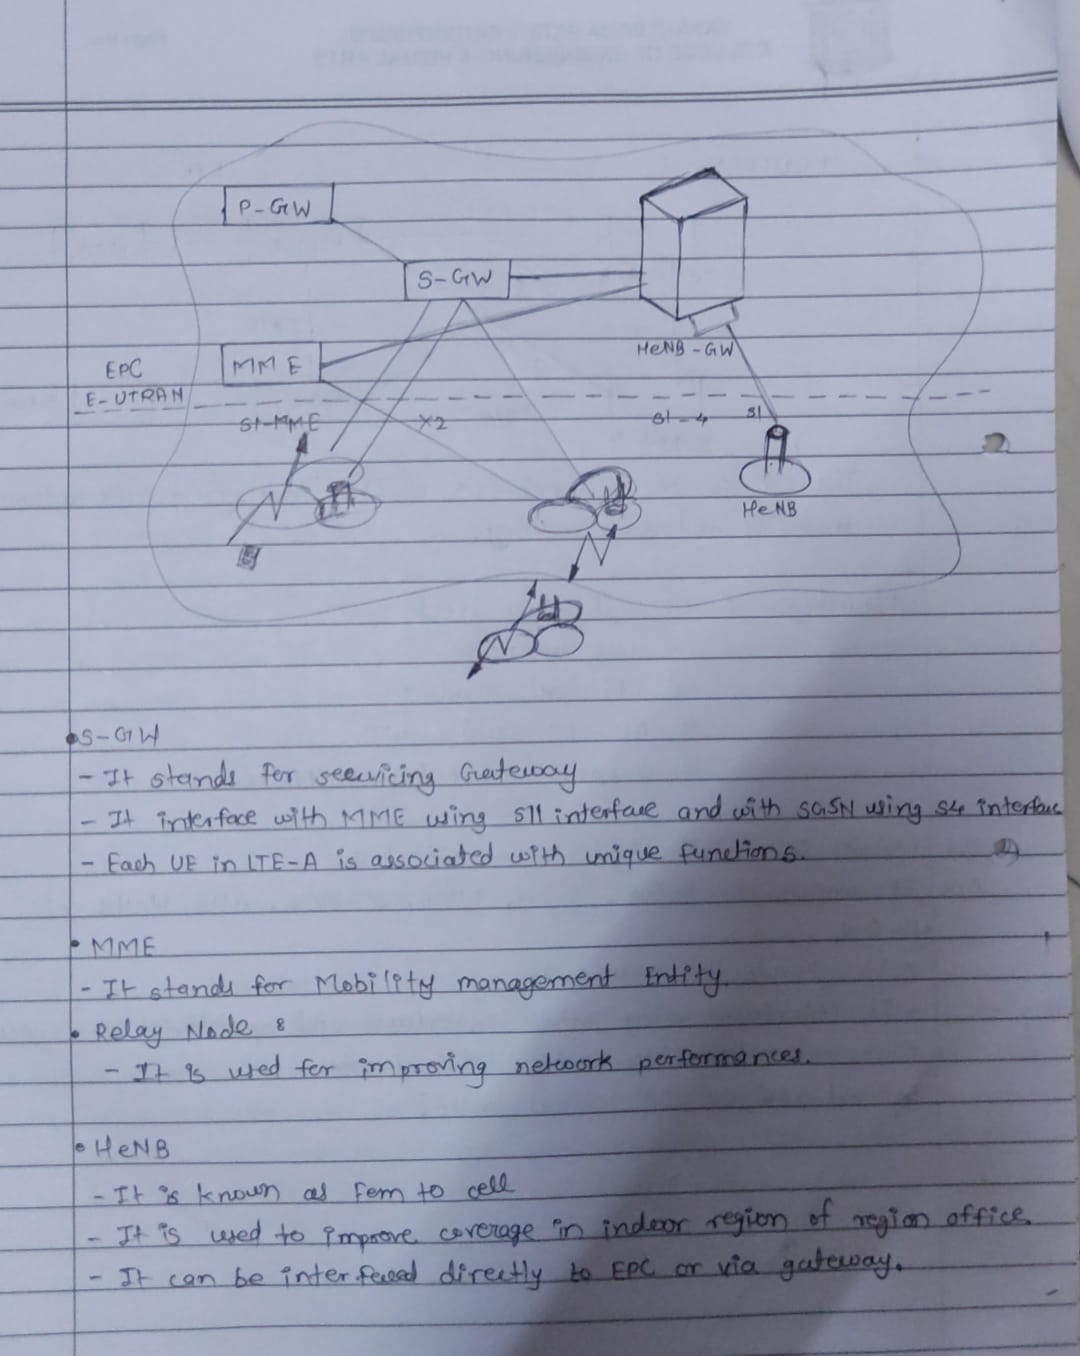 P-GW
S-GW
HeNB-GW
MME
EPC
E-UTRAN
S1-MME
X2
S1-4
S1
HeNB
•S-GW
- It stands for seervicing Gateway
- It interface with MME using S11 interface and with SGSN using S4 interface
- Each UE in LTE-A is associated with unique functions.
• MME
- It stands for Mobility management Entity.
• Relay Node :
- It is used for improving network performances.
• HeNB
- It is known as Fem to cell
- It is used to improve coverage in indoor region of region office.
- It can be interfaced directly to EPC or via gateway.